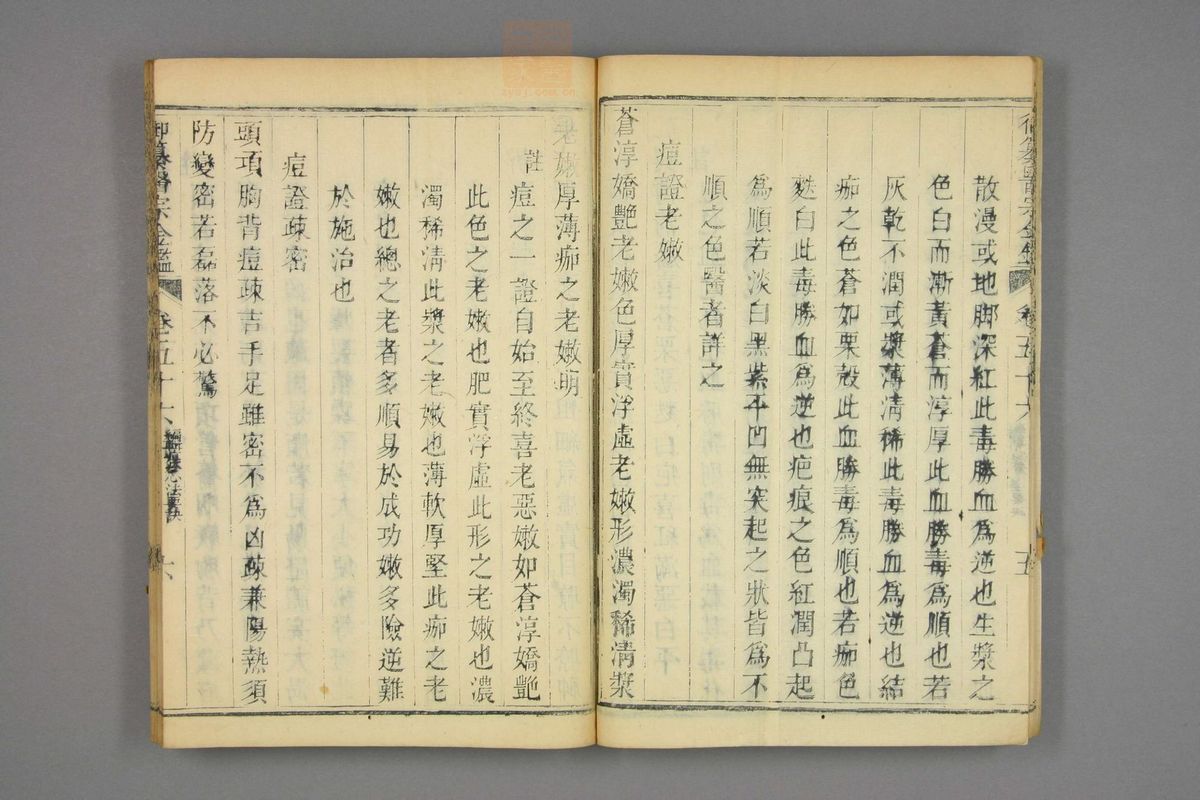 散漫或地脚深紅此毒勝血為逆也生漿之
色白而漸黃蒼而淳厚此血勝毒為順也若
灰乾不潤或漿薄清稀此毒勝血為逆也結
痂之色蒼如栗殼此血勝毒為順也若痂色
麩白此毒勝血為逆也疤痕之色紅潤凸起
為順若淡白黑紫不凹無突起之狀皆為不
順之色醫者詳之
痘證老嫩
蒼淳嬌艷老嫩色厚實浮虛老嫩形濃濁稀清漿
老嫩厚薄痂之老嫩明
註痘之一證自始至終喜老惡嫩如蒼淳嬌艷
此色之老嫩也肥實浮虛此形之老嫩也濃
濁稀清此漿之老嫩也薄軟厚堅此痂之老
嫩也總之老者多順易於成功嫩多險逆難
於施治也
痘證疎密
頭項胸背痘疎吉手足雖密不為凶疎兼陽熱須
防變密若磊落不必驚
御纂醫宗金鑑 卷五十六 六